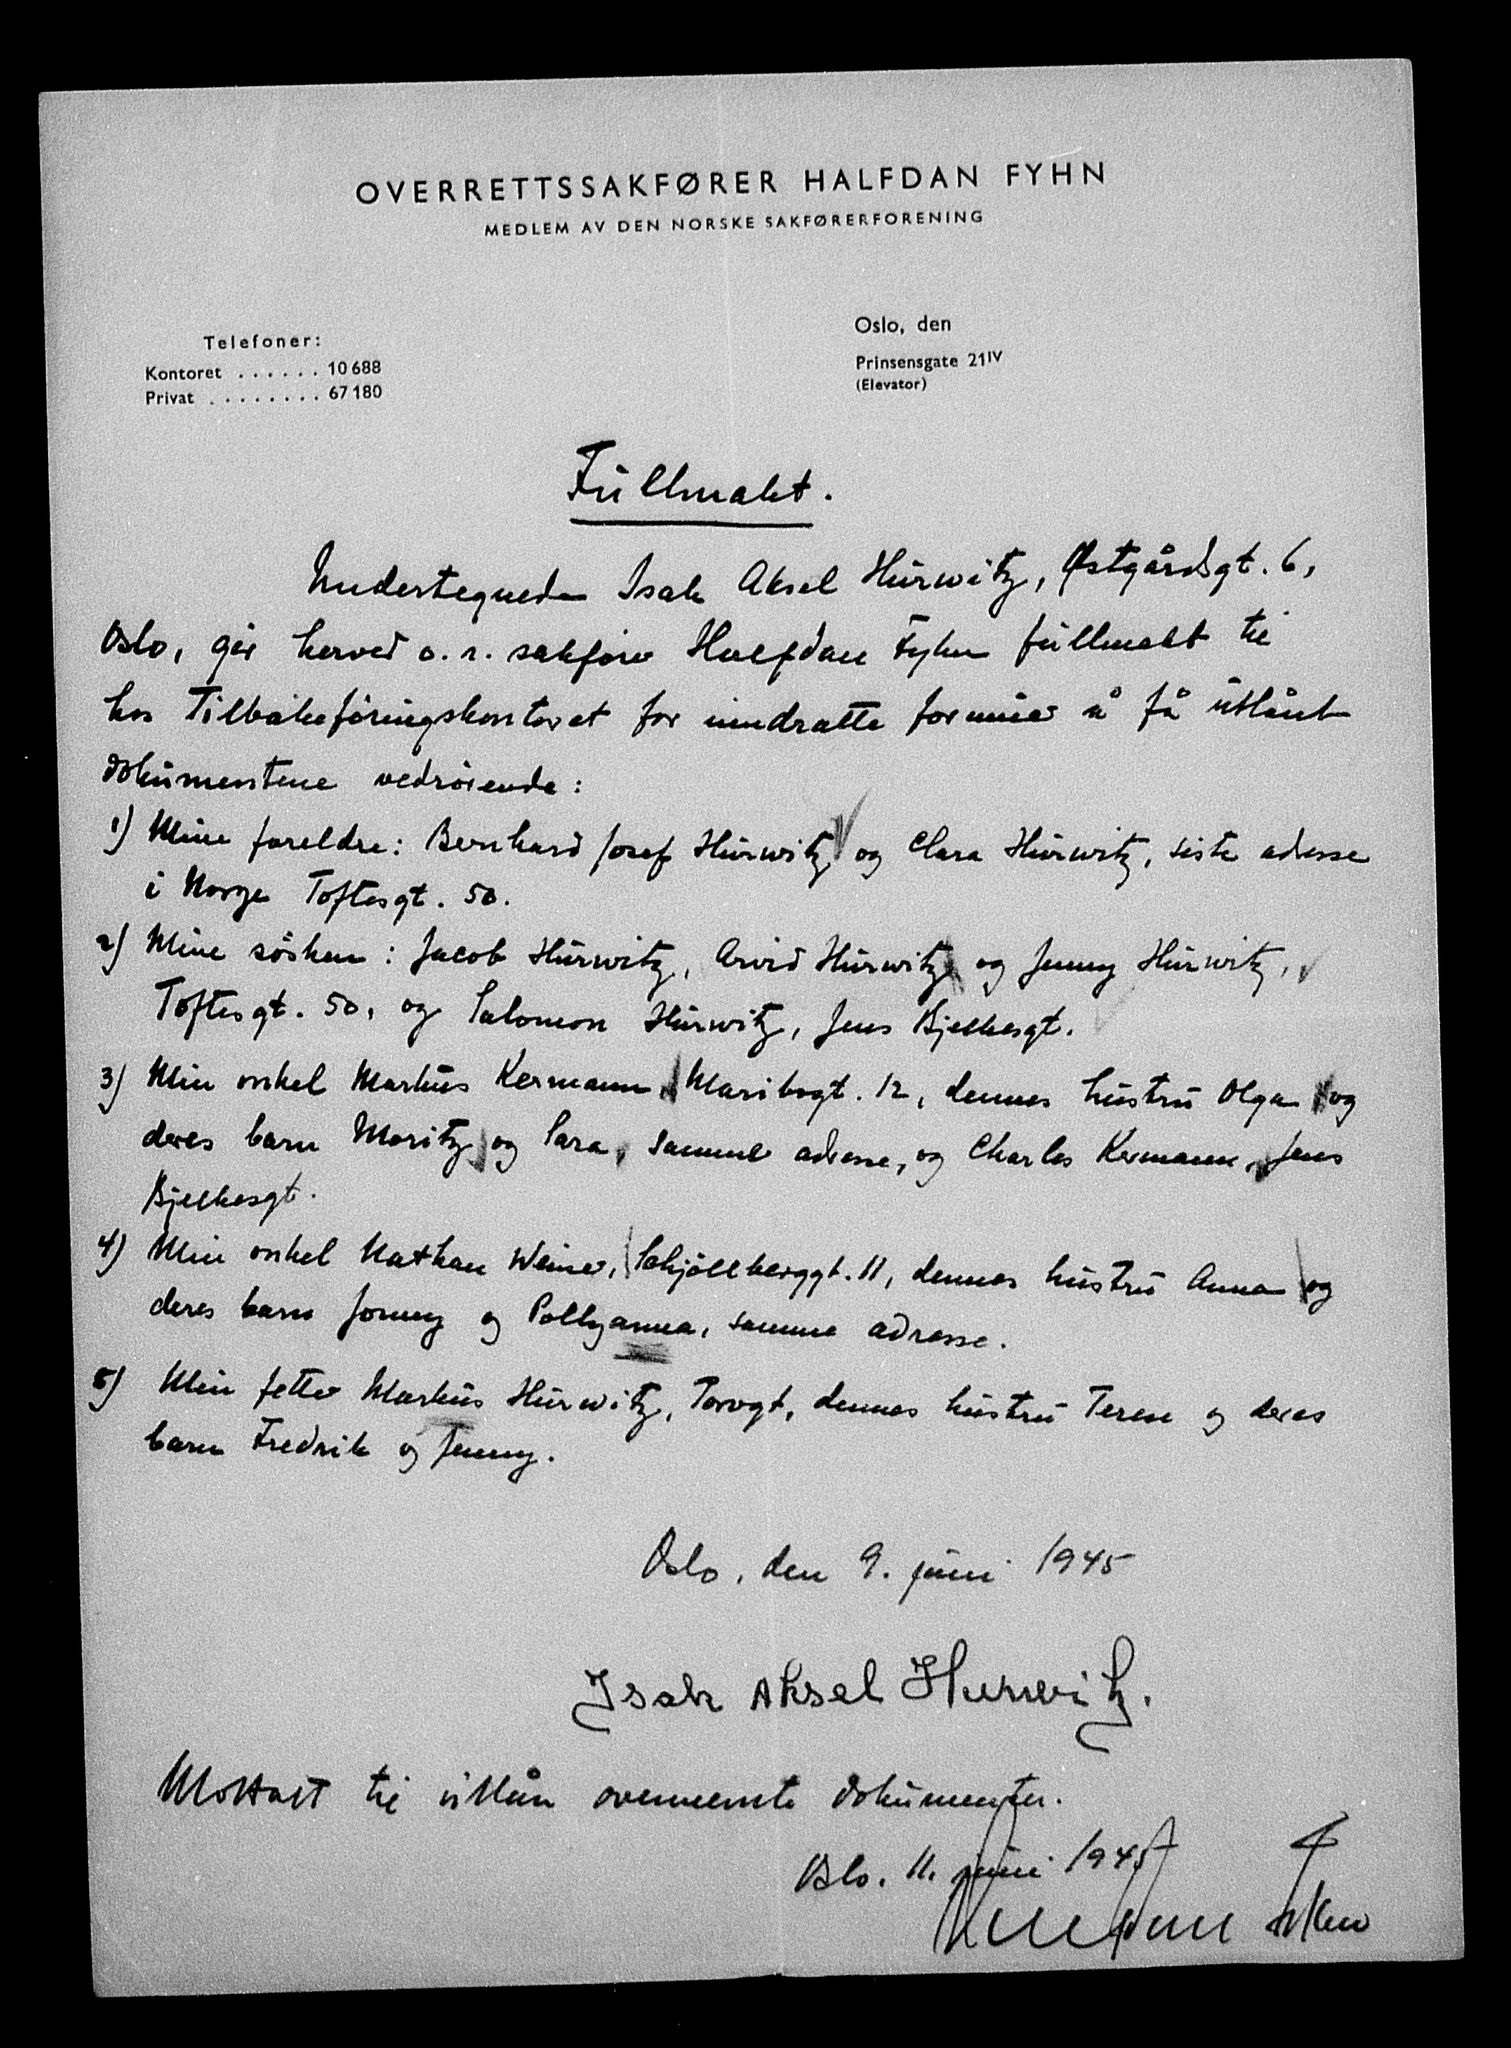 OVERRETTSSAKFØRER HALFDAN FYHN
MEDLEM AV DEN NORSKE SAKFØRERFORENING
Telefoner:
Kontoret . . . . . . 10 688
Privat . . . . . . . . 67 180
Oslo, den
Prinsensgate 21 IV
(Elevator)
Fullmakt.
Undertegnede Isak Aksel Hurwitz, Østgårdsgt. 6,
Oslo, gir herved o. r. sakfører Halfdan Fyhn fullmakt til
hos Tilbakeføringskontoret for inndratte formuer å få utlånt
dokumentene vedrørende:
1) Mine foreldre: Bernhard Josef Hurwitz og Clara Hurwitz, siste adresse
i Norge Toftesgt. 50.
2) Mine søsken: Jacob Hurwitz, Arvid Hurwitz og Jenny Hurwitz,
Toftesgt. 50, og Salomon Hurwitz, Jens Bjelkesgt.
3) Min onkel Markus Kermann, Maribogt. 12, dennes hustru Olga og
deres barn Moritz og Sara, samme adresse, og Charles Kermann, Jens
Bjelkesgt.
4) Min onkel Nathan Weiner, Schjöllberggt. 11, dennes hustru Anna og
deres barn Jonny og Pollyanna, samme adresse.
5) Min fetter Markus Hurwitz, Torvgt, dennes hustru Terese og deres
barn Fredrik og Jenny.
Oslo, den 9. juni 1945
Isak Aksel Hurwitz.
Mottatt til utlån ovennevnte dokumenter.
Oslo. 11. juni 1945
Halfdan Fyhn